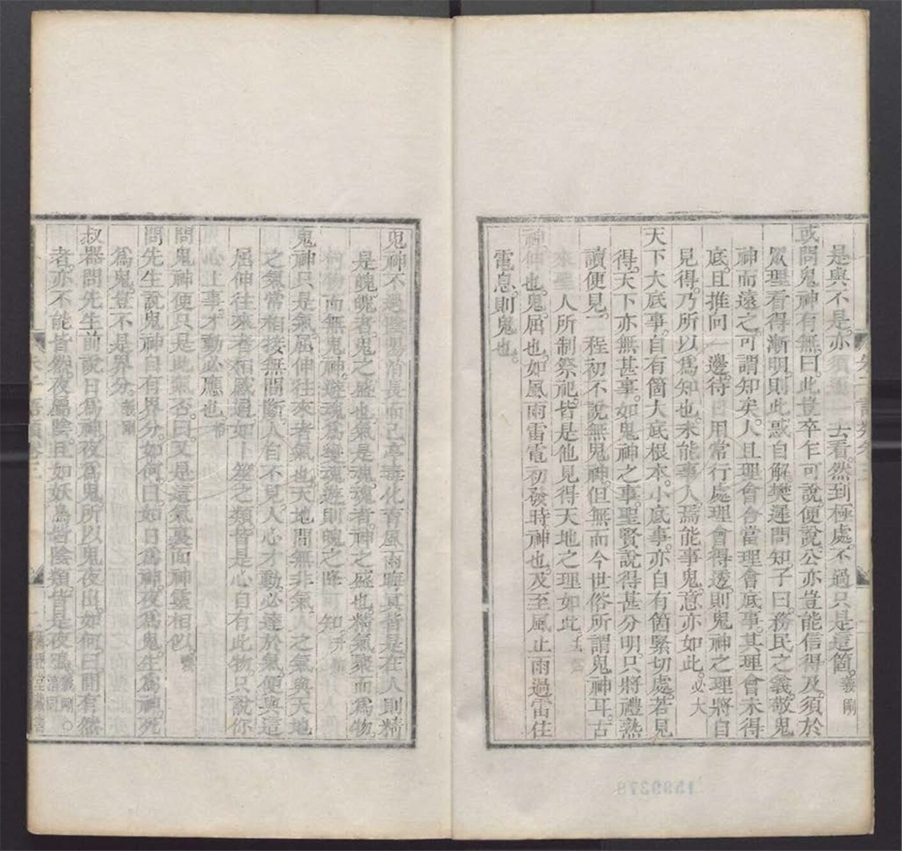 是與不是亦須 去看然到極處不過只是這箇義剛
或問鬼神有無曰此豈卒乍可說便說公亦豈能信得及須於
眾理看得漸明則此惑自解樊遲問知子曰務民之義敬鬼
神而遠之可謂知矣人且理會合當理會底事其理會未得
底且推向一邊待日用常行處理會得透則鬼神之理將自
見得乃所以為知也未能事人焉能事鬼意亦如此必大
天下大底事自有箇大底根本小底事亦自有箇緊切處若見
得天下亦無甚事如鬼神之事聖賢說得甚分明只將禮熟
讀便見二程初不說無鬼神但無而今世俗所謂鬼神耳古
來聖人所制祭祀皆是他見得天地之理如此
神伸也鬼屈也如風雨雷電初發時神也及至風止雨過雷住
電息則鬼也
鬼神不過陰陽消長而已亭毒化育風雨晦冥皆是在人則精
是魄魄者鬼之盛也氣是魂魂者神之盛也精氣聚而為物
何物而無鬼神遊魂為變魂遊則魄之降可知升卿
鬼神只是氣屈伸往來者氣也天地間無非氣人之氣與天地
之氣常相接無間斷人自不見人心才動必達於氣便與這
屈伸往來者相感通如卜筮之類皆是心自有此物只說你
心上事才動必應也
問鬼神便只是此氣否曰又是這氣裏面神靈相似
問先生說鬼神自有界分如何曰如日為神夜為鬼生為神死
為鬼豈不是界分義剛
叔器問先生前說日為神夜為鬼所以鬼夜出如何曰間有然
者亦不能皆然夜屬陰且如妖鳥皆陰類皆是夜鳴義剛
朱子語類卷三
1599378